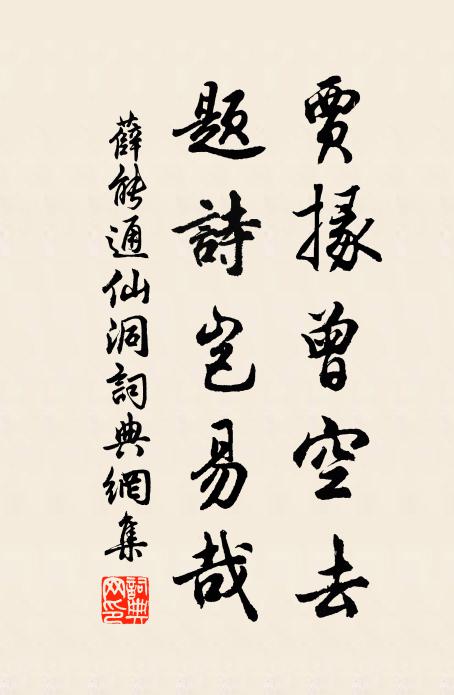 賈掾曾空去
題詩豈易哉
薛能通仙洞詞典網集
詞典网印